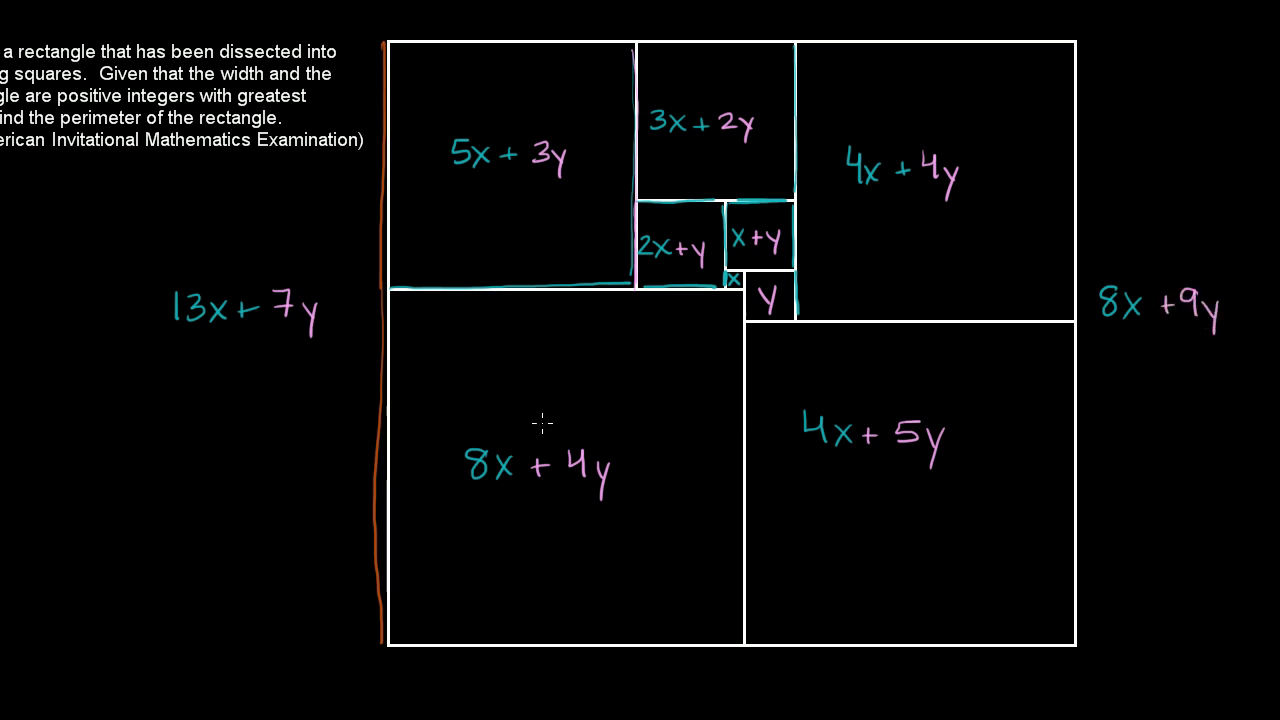 a rectangle that has been dissected into
g squares. Given that the width and the
gle are positive integers with greatest
ind the perimeter of the rectangle.
erican Invitational Mathematics Examination)
5x + 3y
3x + 2y
4x + 4y
2x + y
x + y
x
y
13x + 7y
8x + 9y
8x + 4y
4x + 5y